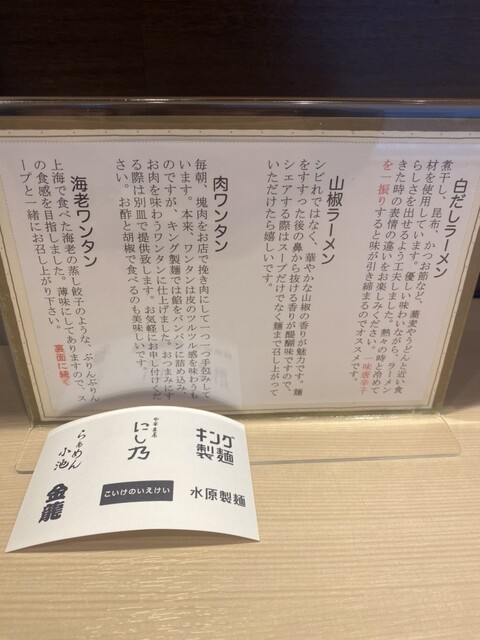 白だしラーメン
煮干し、昆布、かつお節など、蕎麦やうどんと近い食
材を使用しています。優しい味わいながら、ラーメン
らしさを出せるよう工夫しました。熱々の時と冷めて
きた時の表情の違いをお楽しみください。一味唐辛子
を一振りすると味が引き締まるのでオススメです。
山椒ラーメン
シビれではなく、華やかな山椒の香りが魅力です。麺
をすすった後の鼻から抜ける香りが醍醐味ですので、
シェアする際はスープだけでなく麺まで召し上がって
いただけたら嬉しいです。
肉ワンタン
毎朝、塊肉をお店で挽き肉にして一つ一つ手包みして
います。本来、ワンタンは皮のツルツル感を味わうも
のですが、キング製麺では餡をパンパンに詰め込み、
お肉を味わうワンタンに仕上げました。おつまみにす
る際は別皿で提供致します。お気軽にお申し付けくだ
さい。お酢と胡椒で食べるのも美味しいです。
海老ワンタン
上海で食べた海老の蒸し餃子のような、ぷりんぷりん
の食感を目指しました。薄味にしてありますので、ス
ープと一緒にお召し上がり下さい。
裏面に続く
キング
製麺
中華蕎麦
にし乃
らぁめん
小池
水原製麺
こいけのいえけい
金龍